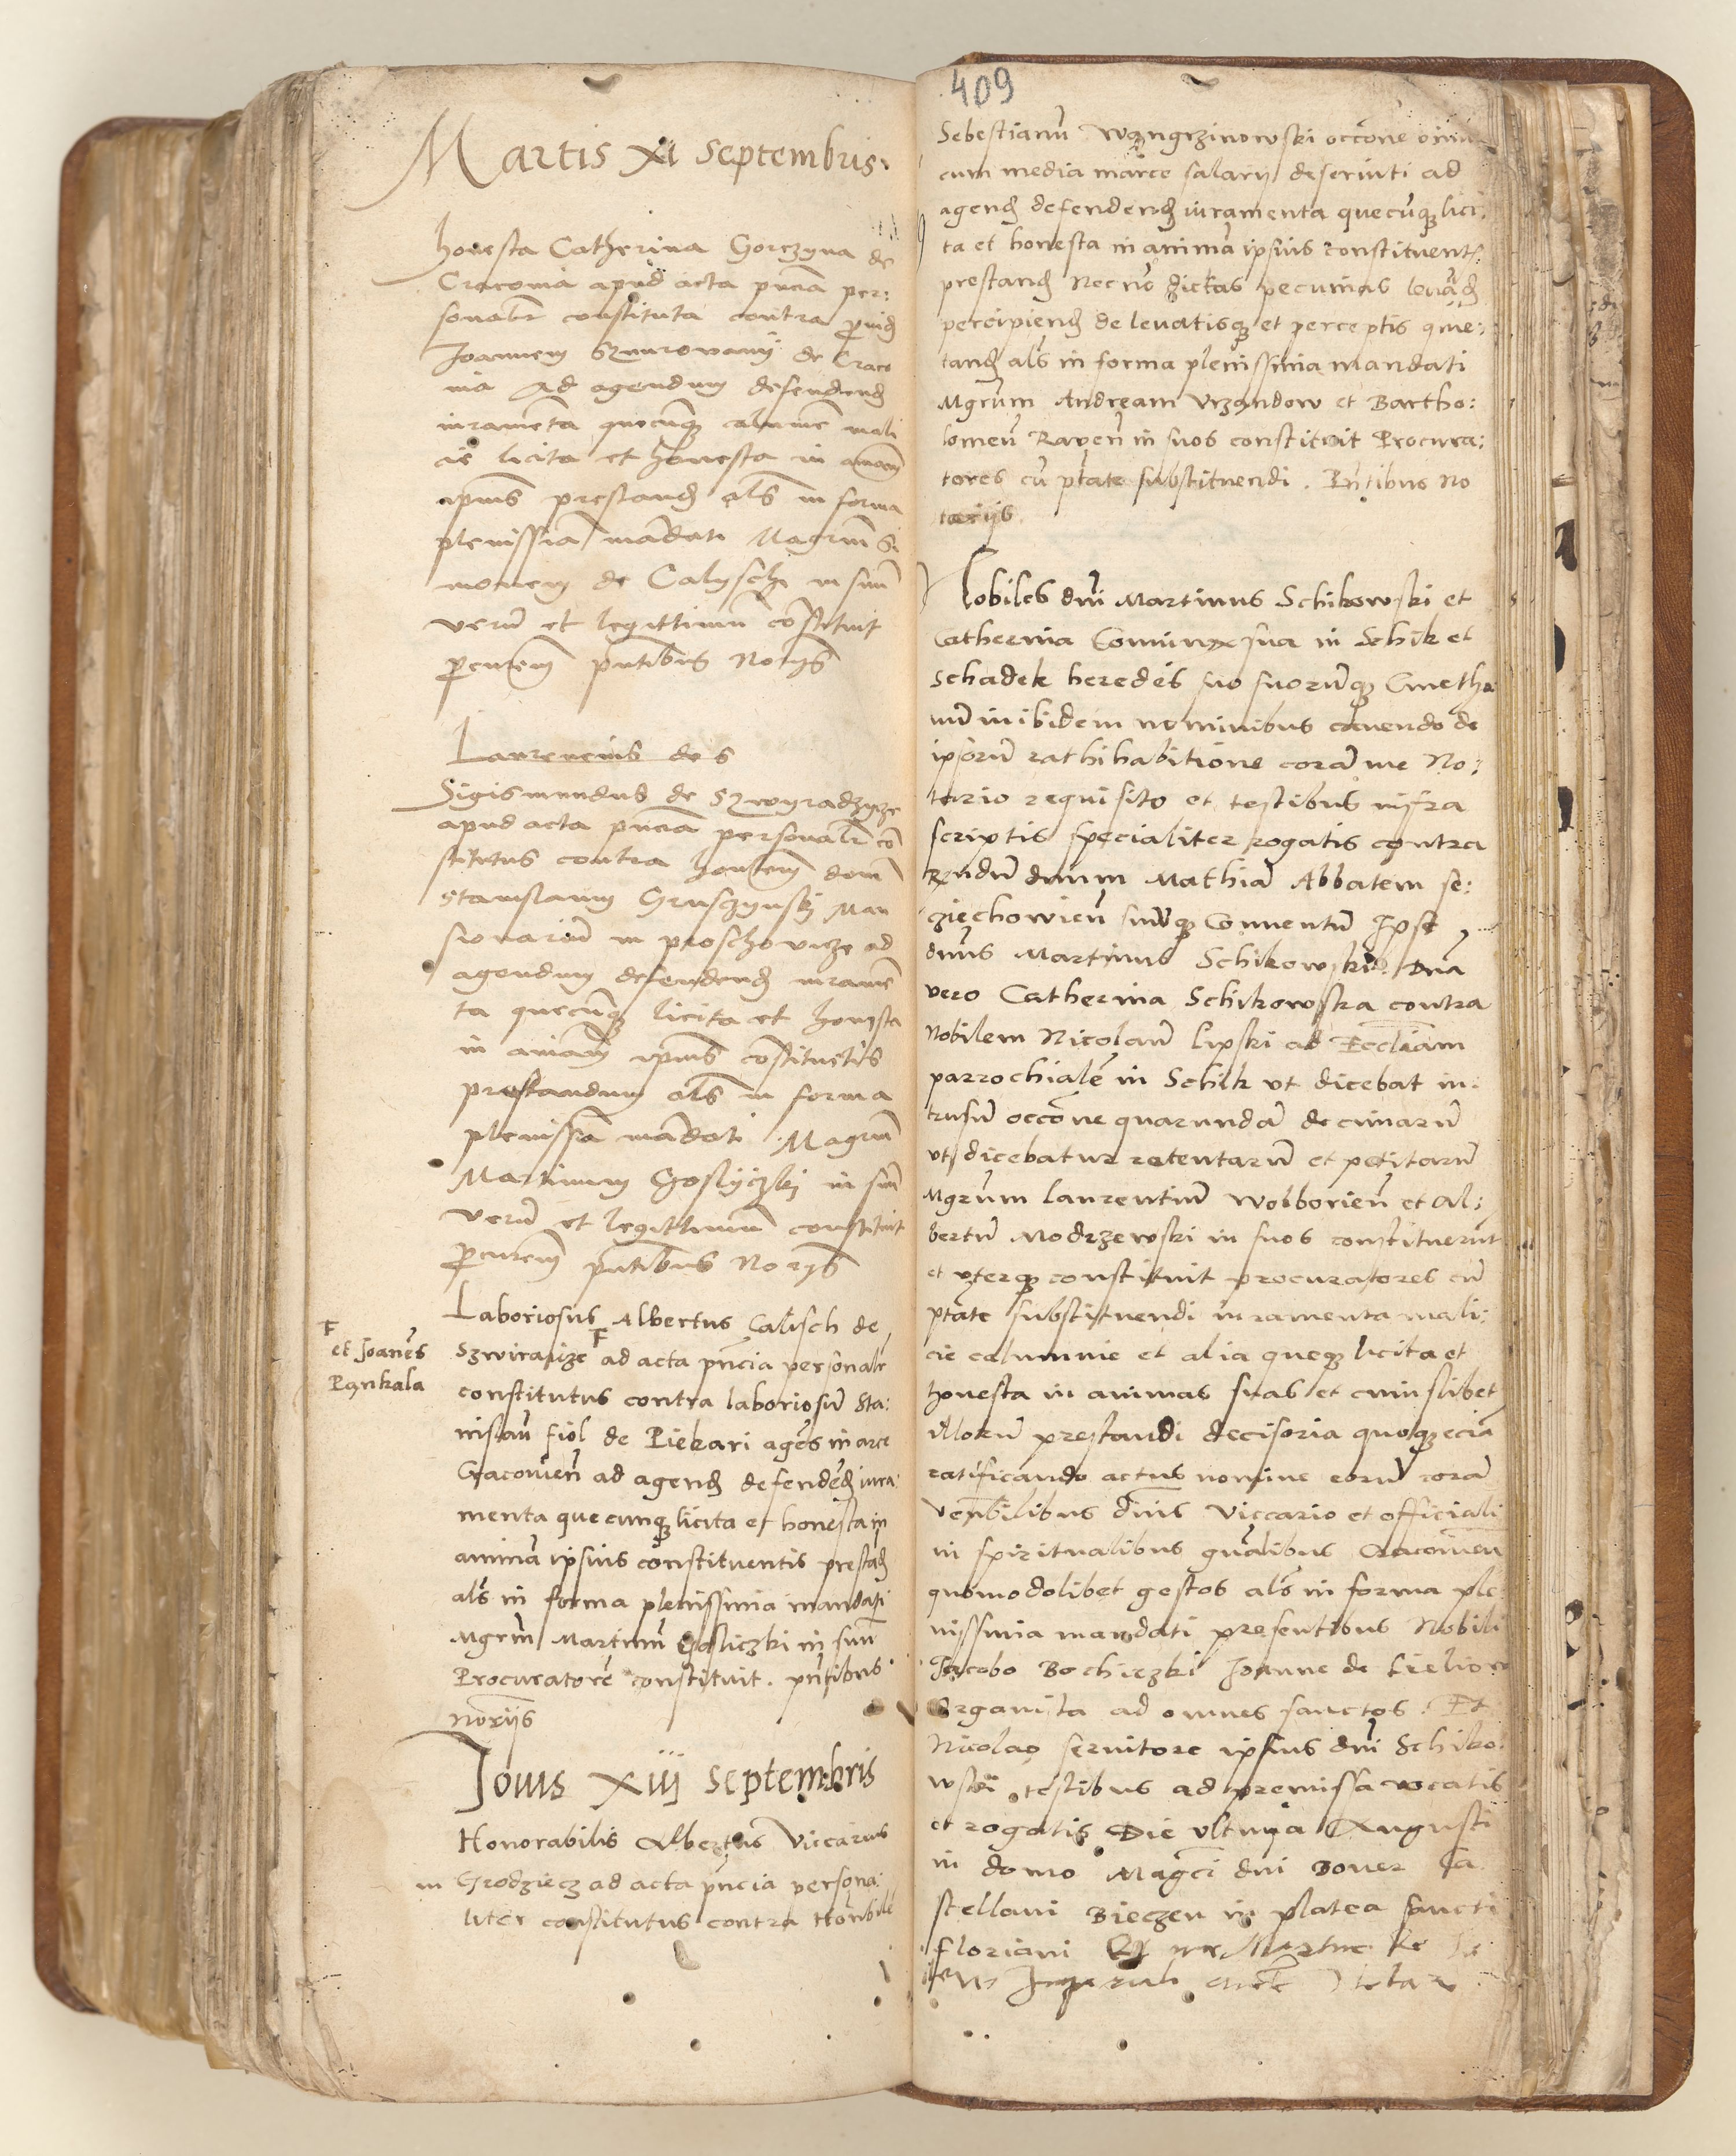 Martis xi Septembris.
honesta Catherina Gorczyna de
Cracovia apud acta pntia per:
sonalr constituta contra provid
Joannem Sznurovany de Craco
via Ad agendum defendend
iurameta quecunq calumnie mali
cie licita et honesta in animam
ipius prestand als in forma
plenissima mandati Magrum Si
monem de Calysch in suu
veru et legittimum constituit
procurem pntibus Notys
Laurencius de S
Sigismundus de
apud acta pntia personalr co
stitutus contra honbem dom
Stanislaum Gruschynski Man
sionariu in proschovicze ad
agendum defendend iurame
ta quecunq licita et honesta
in animam ipius costituetis
prestandum als in forma
plenissia mandati Magrum
Martinum Goslyczki in suu
veru et legittimum constituit
procurem pntibus Norys
Laboriosus Albertus Calisch de
F et Joanes Pankala
ad acta pncia personalr
constitutus contra laboriosu Sta:
nislau fiol de Piekari ages in arce
Cracovien ad agend defended iura:
menta quecunq licita et honesta in
anima ipsius constituentis prestad
als in forma plenissima mandati
Mgrm Martinu Gosliczki in suu
Procuratore constituit. pntibus
noriis
Jovis xiij Septembris
Honorabilis Albertus Viccarius
in Grodziecz ad acta pncia persona:
liter constitutus contra Honbile
409
Sebestianu Wangrzinowski occone
cum media marce salary deserviti ad
agend defendend iuramenta quecuq lici:
ta et honesta in anima ipsius constituent
prestand Necno dictas pecunias levad
percipiend de levatisq et perceptis quie:
tand als in forma plenissima mandati
Mgrum Andream Vrzandow et Bartho:
lomeu Raven in suos constituit Procura:
tores cu ptate substituendi. Pntibus No
tariis
Nobiles dni Martinus Schikowski et
Catherina Coniunx sua in Schik et
Schadek heredes suo suorumq Cmetho
nu inibidem nominibus cavendo de
ipsoru rathihabitione cora me No:
tario requisito et testibus infra
scriptis specialiter rogatis contra
Rendu dnum Mathia Abbatem se:
ziechovien suuq Conventu Ipse
dnus Martinus Schikowski Dna
vero Catherina Schikowska contra
Nobilem Nicolau Lipski ad Eccliam
parrochiale in Schik vt dicebat in:
trusu occone quarunda decimaru
vt dicebatur retentaru et petitaru
Mgrum Laurentiu Wolborien et Al:
bertu Modrzewski in suos constituerut
et vterq constituit procuratores cu
ptate substituendi iuramenta mali:
cie calumnie et alia queq licita et
honesta in animas suas et cuiuslibet
illoru prestandi decisoria quoq ecia
ratificando actus nomine eoru cora
venbilibus dnis Viccario et officiali
in spiritualibus gnalibus Cracovien
quomodolibet gestos als in forma ple
nissima mandati presentibus Nobili
Jacobo Bochiczki Joanne de
Organista ad omnes sanctos. Et
Nicolao servitore ipsius dni Schiko:
wski testibus ad premissa vocatis
et rogatis Die vltima Augusti
in domo Magci dni Boner Ca
stellani Bieczen in platea sancti
Floriani Et me